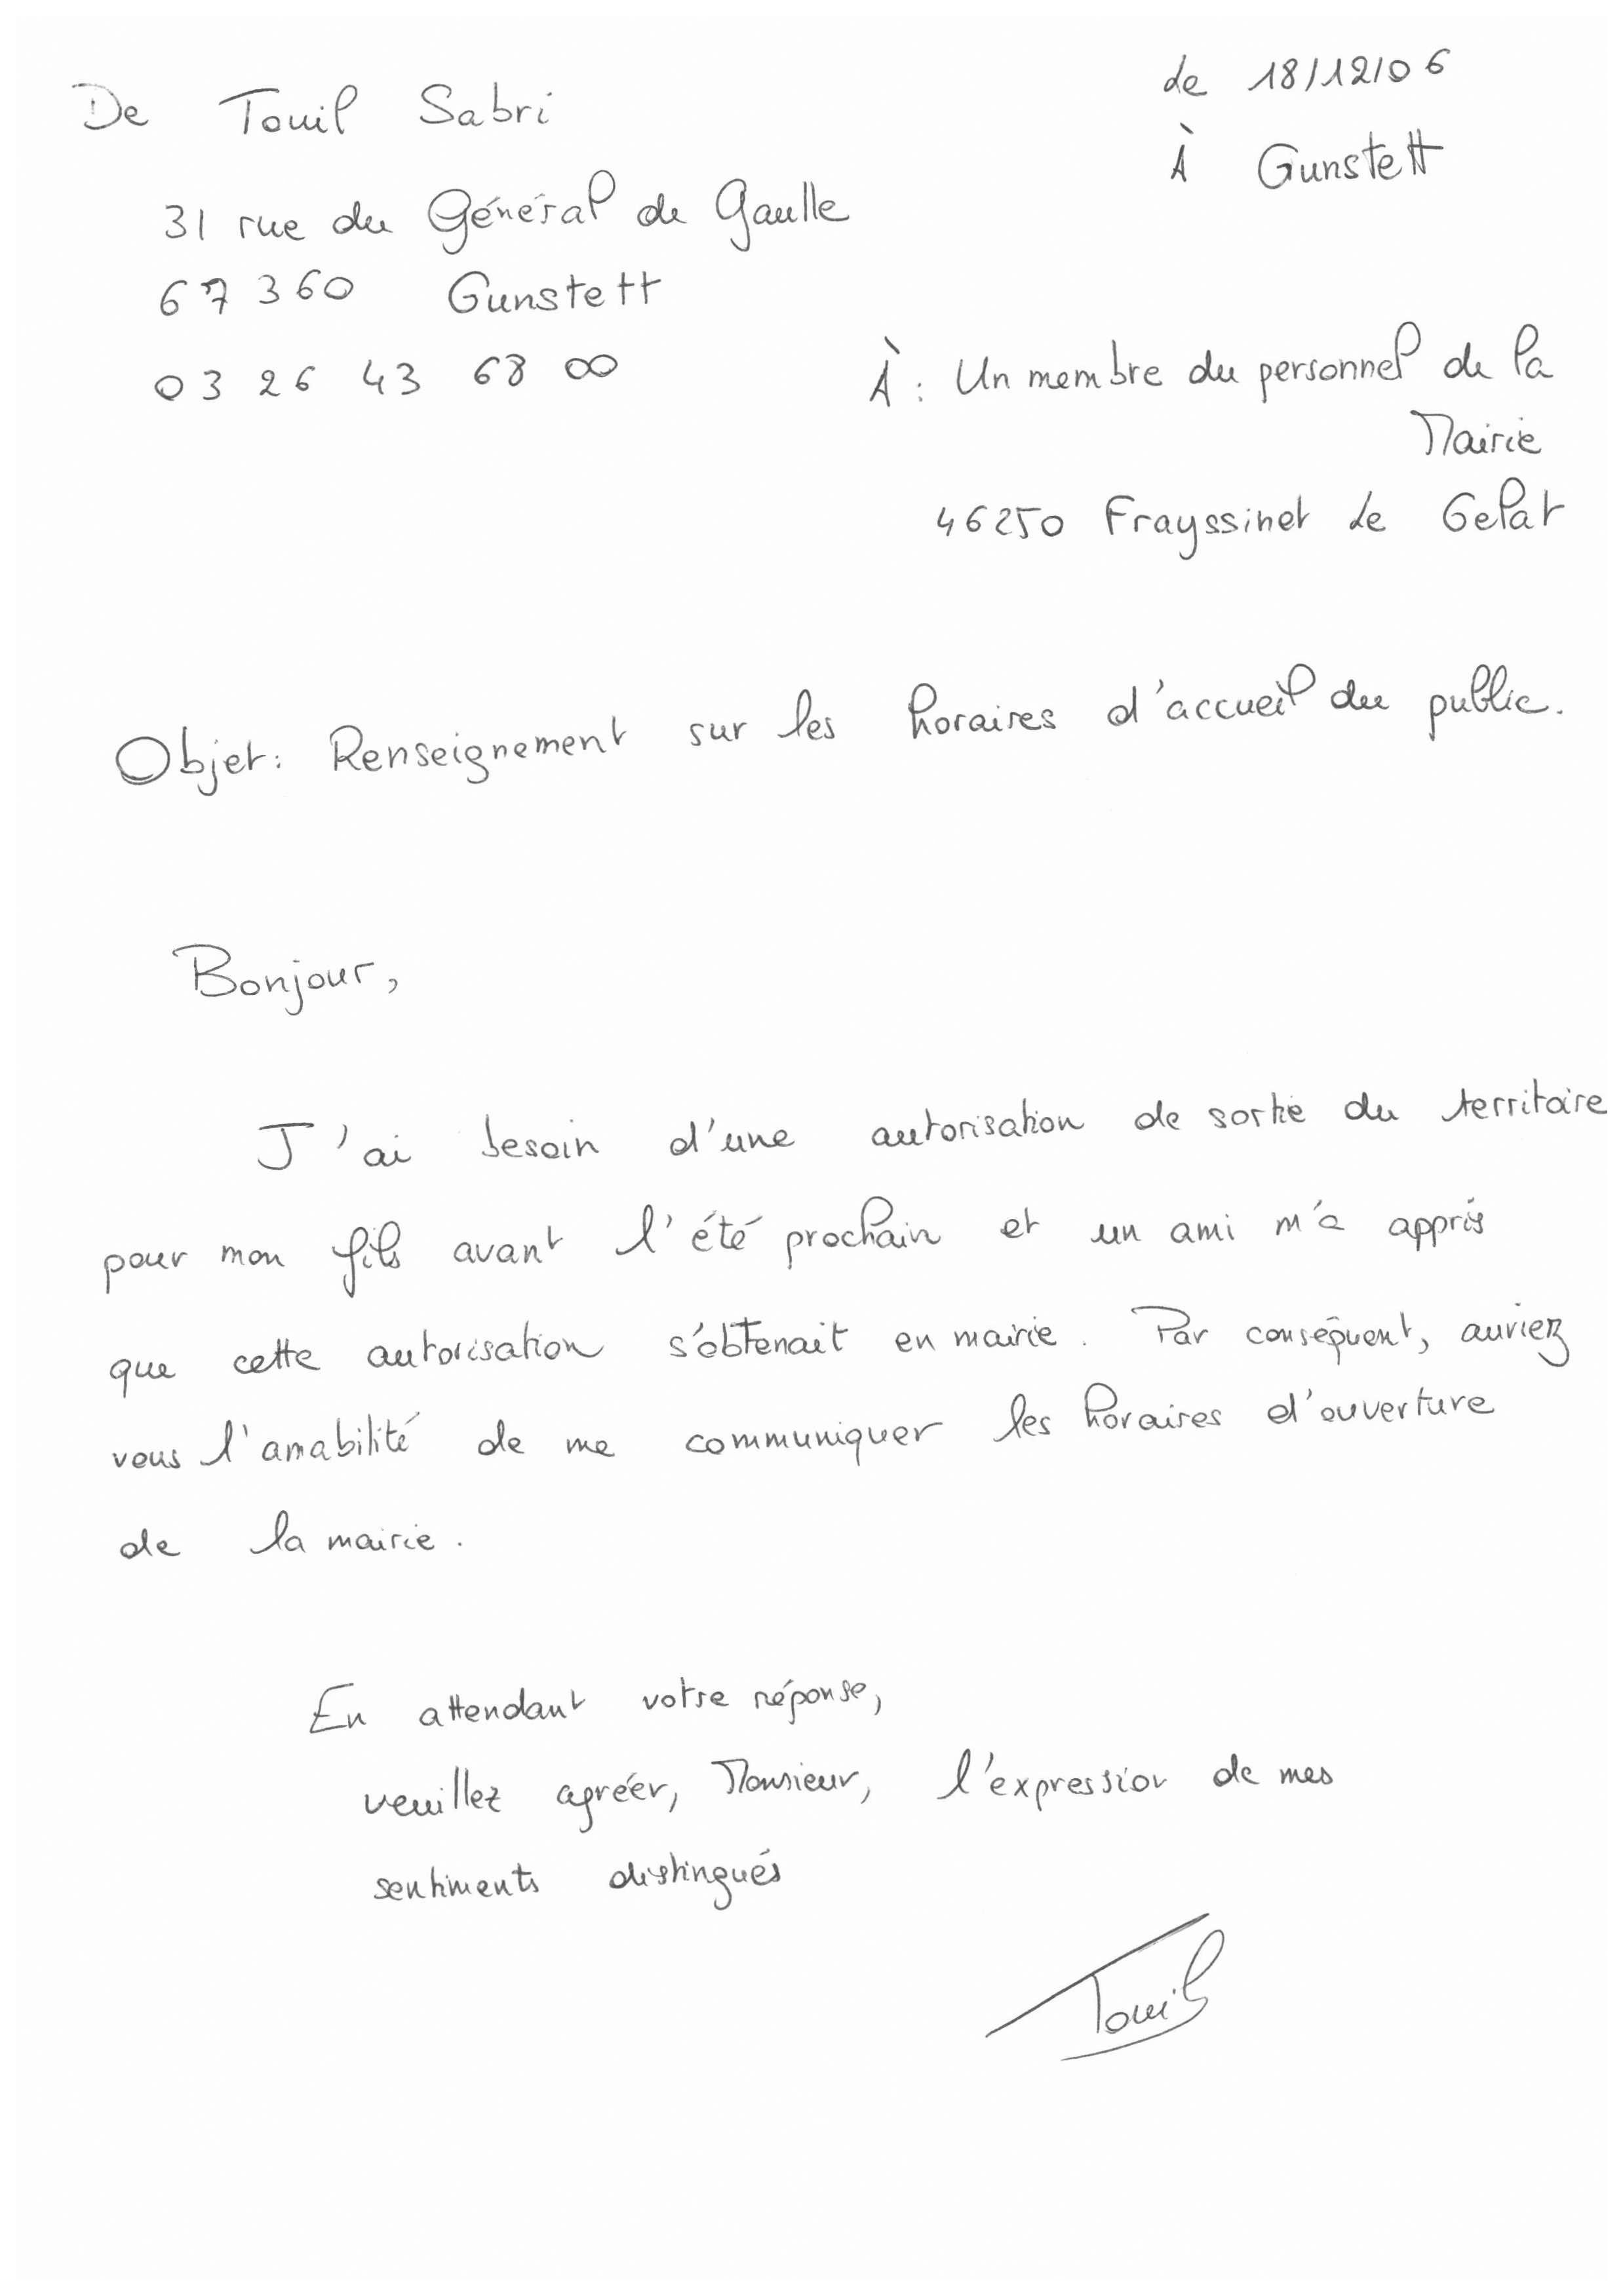 De Touil Sabri
de 18/12/06
À Gunstett
31 rue du Général de Gaulle
67360 Gunstett
03 26 43 68 00
À : Un membre du personnel de la
Mairie
46250 Frayssinet le Gelat
Objet : Renseignement sur les horaires d'accueil du public.
Bonjour,
J'ai besoin d'une autorisation de sortie du territoire
pour mon fils avant l'été prochain et un ami m'a appris
que cette autorisation s'obtenait en mairie. Par conséquent, auriez
vous l'amabilité de me communiquer les horaires d'ouverture
de la mairie.
En attendant votre réponse,
veuillez agréer, Monsieur, l'expression de mes
sentiments distingués
Touil